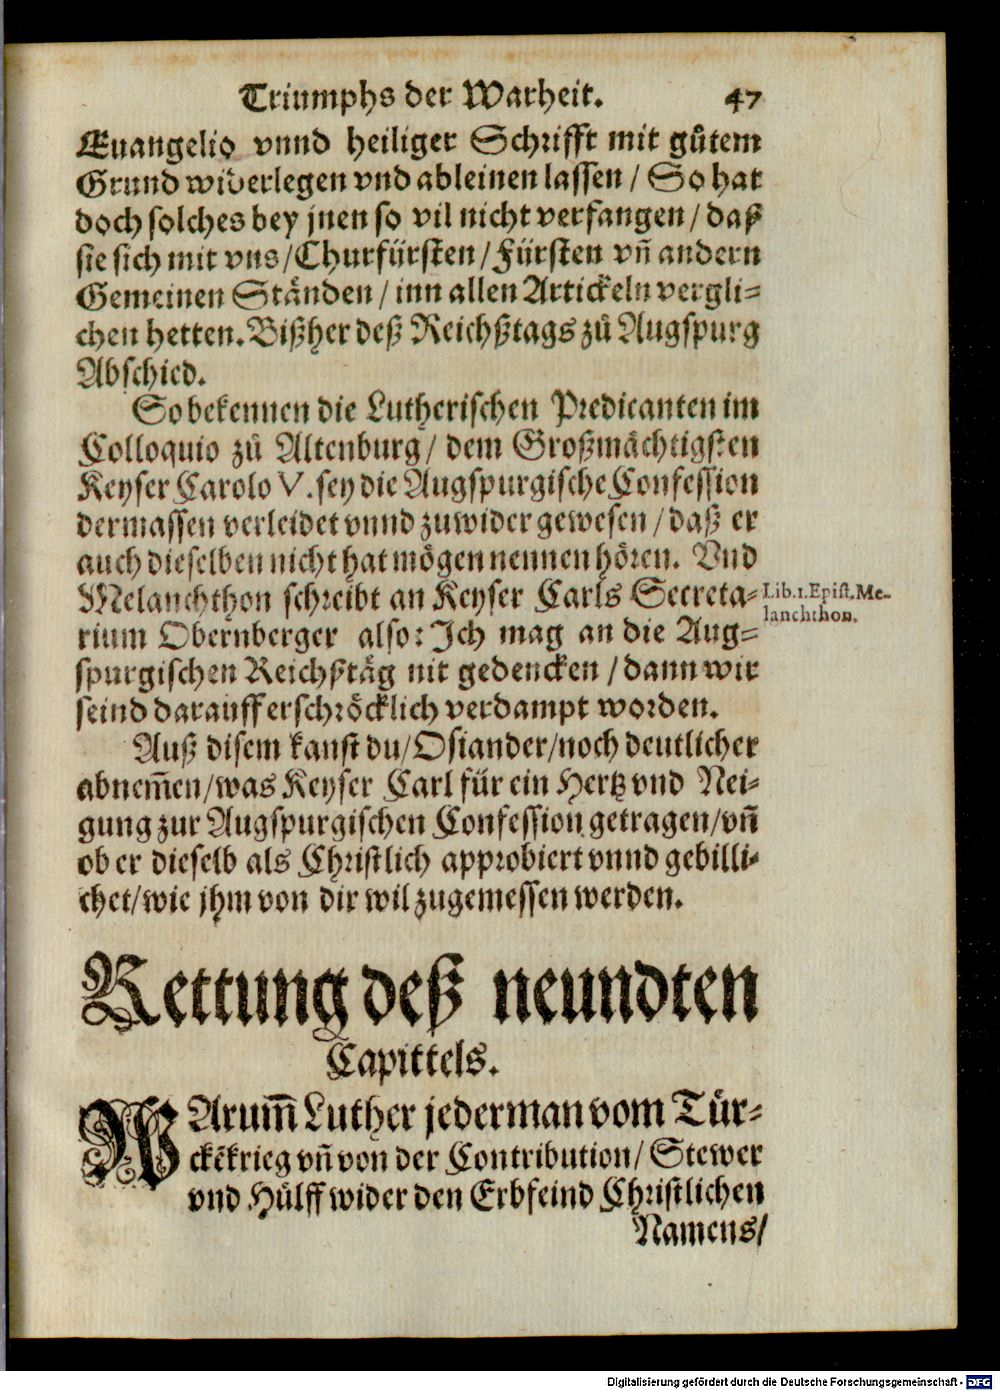 Triumphs der Warheit. 47
Euangelio vnnd heiliger Schrifft mit gůtem
Grund widerlegen vnd ableinen lassen / So hat
doch solches bey jnen so vil nicht verfangen / daß
sie sich mit vns / Churfürsten / Fürsten vñ andern
Gemeinen Ständen / inn allen Artickeln vergli-
chen hetten. Bißher deß Reichßtags zů Augspurg
Abschied.
So bekennen die Lutherischen Predicanten im
Colloquio zů Altenburg / dem Großmächtigsten
Keyser Carolo V. sey die Augspurgische Confession
dermassen verleidet vnnd zuwider gewesen / daß er
auch dieselben nicht hat mögen nennen hören. Vnd
Melanchthon schreibt an Keyser Carls Secreta-
Lib.1.Epist.Me-
lanchthon.
rium Obernberger also: Ich mag an die Aug-
spurgischen Reichßtäg nit gedencken / dann wir
seind darauff erschröcklich verdampt worden.
Auß disem kanst du / Osiander / noch deutlicher
abnem̃en / was Keyser Carl für ein Hertz vnd Nei-
gung zur Augspurgischen Confession getragen / vñ
ob er dieselb als Christlich approbiert vnnd gebilli-
chet / wie jhm von dir wil zugemessen werden.
Rettung deß neundten
Capittels.
WArum̃ Luther jederman vom Tür-
ckẽkrieg vñ von der Contribution / Stewer
vnd Hülff wider den Erbfeind Christlichen
Namens /
Digitalisierung gefördert durch die Deutsche Forschungsgemeinschaft - DFG